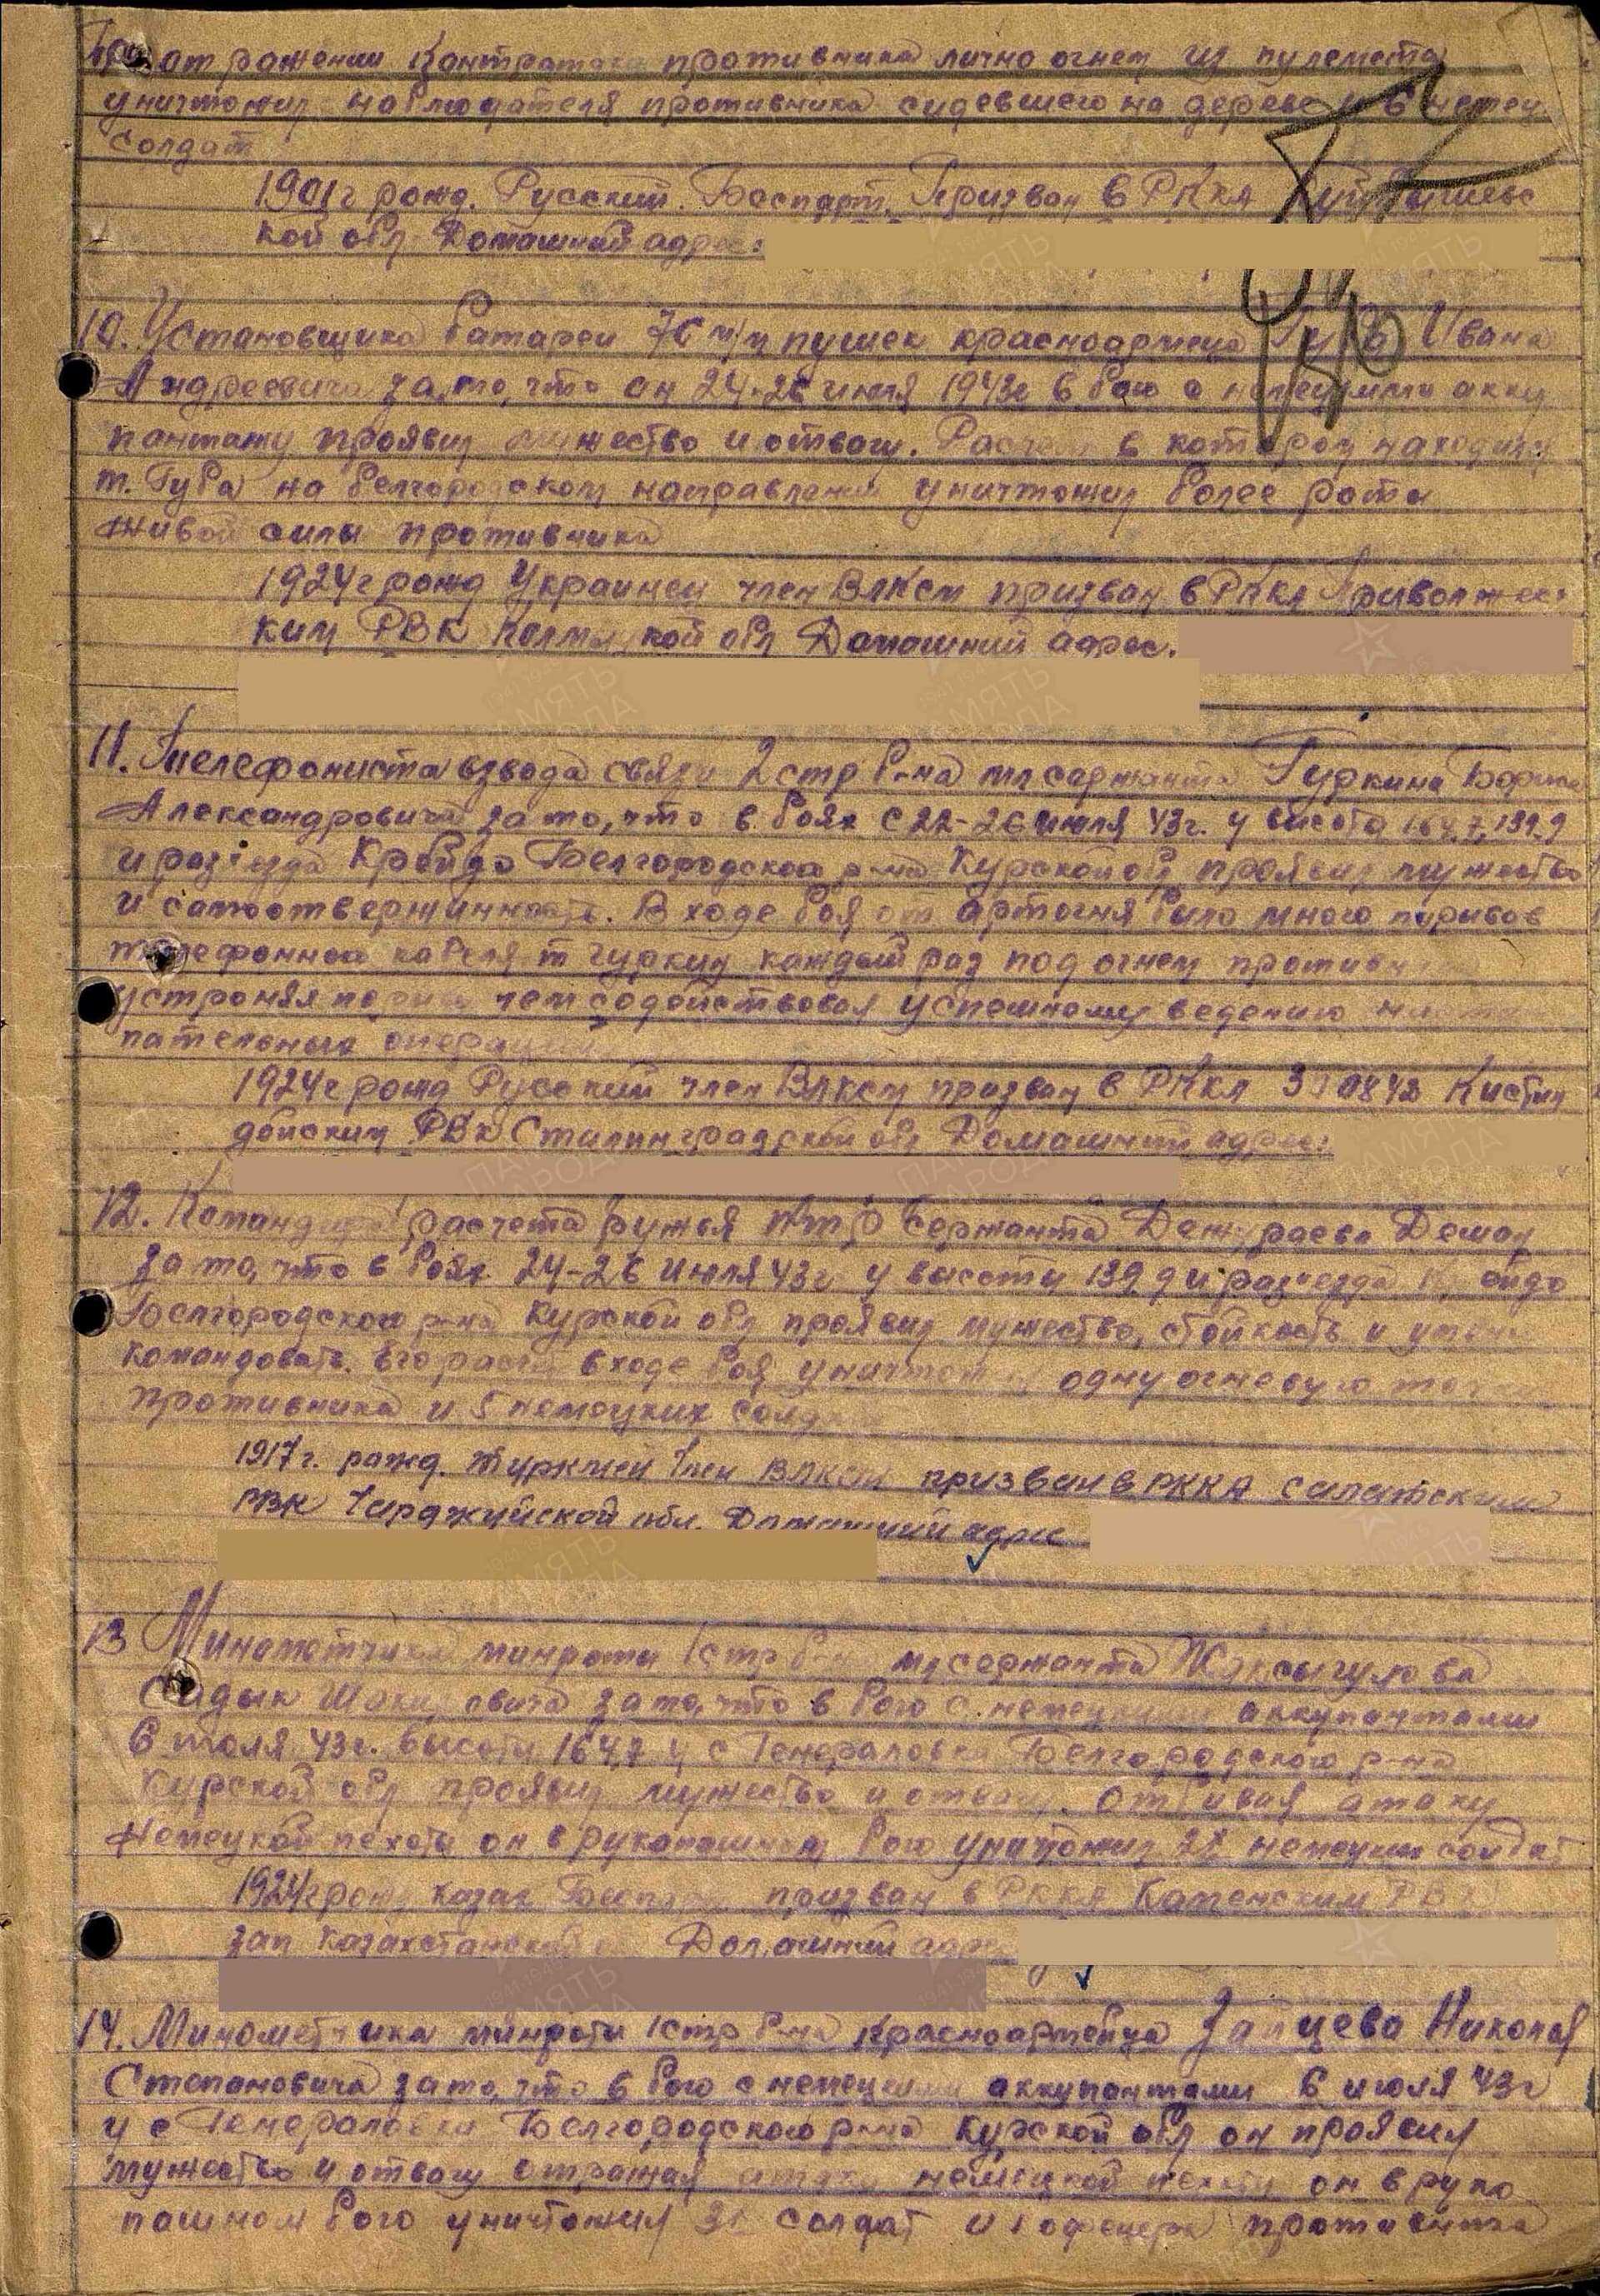 При отражении контратаки противника лично огнем из пулемета
уничтожил наблюдателя противника сидевшего на дереве и 6 немец
солдат
1901г рожд. Русский. Беспарт. Призван в РККА Куйбышевс
кой обл Домашний адрес:
10. Установщика батареи 76 м/м пушек красноармейца Губа Ивана
Андреевича за то, что он 24-26 июля 1943г в бою с немецкими окку
пантами проявил мужество и отвагу. Расчет в котором находился
т. Губа на белгородском направлении уничтожил более роты
живой силы противника
1924г рожд Украинец член ВЛКСМ призван в РККА Приволжес
ким РВК Калмыцкой обл Домашний адрес.
11. Телефониста взвода связи 2 стр б-на мл сержанта Гуркина Бориса
Александровича за то, что в боях с 22-26 июля 43г. у высоты 164,7, 139.9
и разъезда Крейда Белгородского р-на Курской обл проявил мужество
и самоотверженность. В ходе боя от артогня было много порывов
телефонного кабеля т Гуркин каждый раз под огнем противника
устронял порывы чем содействовал успешному ведению насту
пательных операций
1924г рожд Русский член ВЛКСМ призван в РККА
дойским РВК Сталинградской обл Домашний адрес:
12. Командира расчета ружья ПТР Сержанта Деман
за то, что в боях 24-26 июля 43г у высоты 139.9 и разъезда Крейда
Белгородского р-на Курской обл проявил мужество, стойкость и умение
командовать. Его расчет в ходе боя уничтожил одну огневую точку
противника и 5 немецких солдат
1917г. рожд. туркмен член ВЛКСМ призван в РККА
РВК Чарджуйской обл. Домашний адрес
13 Минометчика минроты 1 стр б-на мл сержанта Жаксыгулова
Садык за то, что в бою с немецкими оккупантами
6 июля 43г. высоты 164,7 у с Генераловка Белгородского р-на
Курской обл проявил мужество и отвагу. Отбивая атаку
немецкой пехоты он в рукопашном бою уничтожил немецких солдат
1924г рожд казах Беспарт призван в РККА Каменским РВК
Зап Казахстанской об Домашний адрес
14. Минометчика минроты 1 стр б-на Красноармейца Зайцева Николая
Степановича за то, что в бою с немецкими оккупантами 6 июля 43г
у с Генераловка Белгородского р-на Курской обл он проявил
мужество и отвагу отражая атаку немецкой пехоты он в руко
пашном бою уничтожил солдат и 1 офицера противника